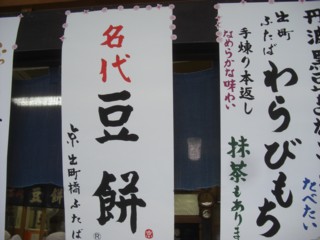 名代
豆餅
京 出町橋 ふたば
出町
ふたば
わらびもち
手煉り本返し
なめらかな味わい
抹茶もありま
丹波黒豆きなこ
たべたい